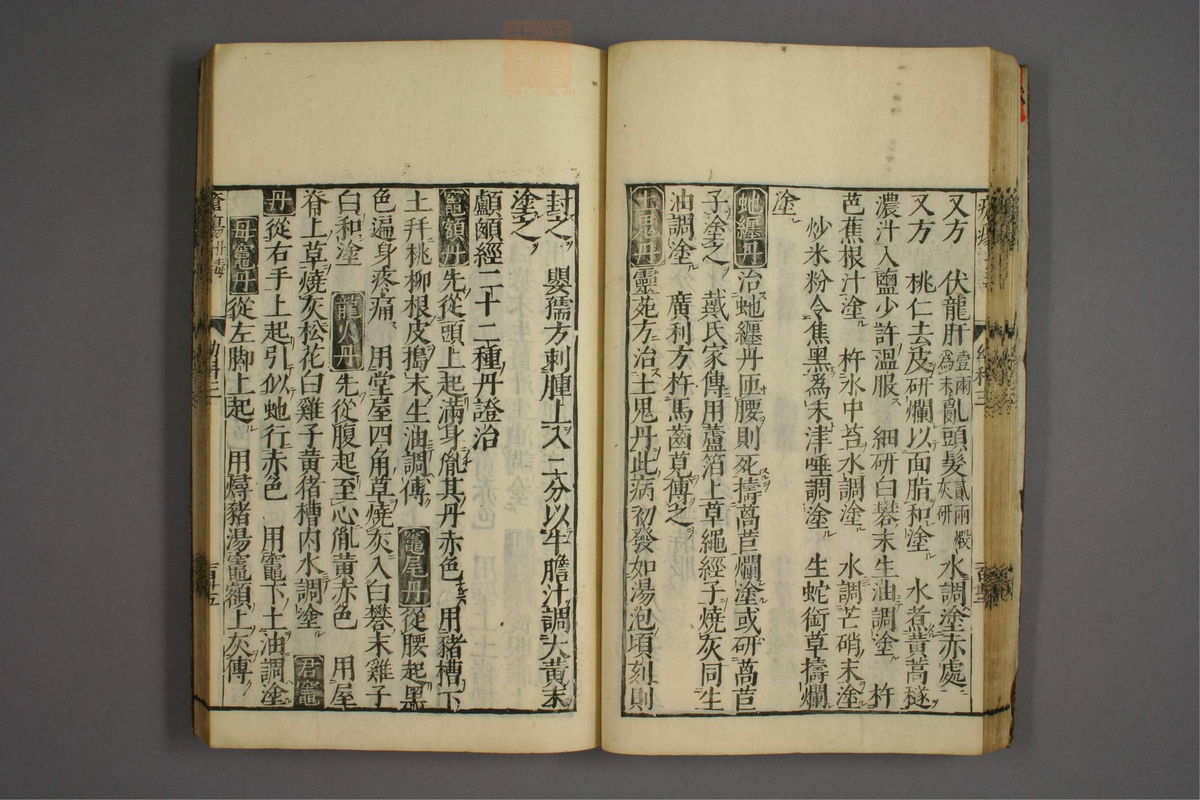 又方　伏龍肝壹兩為末亂頭髮貳兩煅灰研水調塗赤處
又方　桃仁去皮研爛以面脂和塗　水煮黃蒿䅥
濃汁入鹽少許溫服　細研白礬末生油調塗　杵
芭蕉根汁塗　杵水中苔水調塗　水調芒硝末塗
炒米粉令焦黑為末津唾調塗　生蛇銜草擣爛
塗
虵纏丹　治虵纏丹匝腰則死擣萵苣爛塗或研萵苣
子塗之　戴氏家傳用蘆箔上草繩經子燒灰同生
油調塗　廣利方杵馬齒莧傅之
土鬼丹　靈苑方治土鬼丹此病初發如湯泡頃刻則
封之　嬰孺方刺腫上入二分以牛膽汁調大黃末
塗之
顱顖經二十二種丹證治
竈額丹　先從頭上起滿身胤其丹赤色　用豬槽下
土并桃柳根皮搗末生油調傅　竈尾丹從腰起黑
色遍身疼痛　用堂屋四角草燒灰入白礬末雞子
白和塗　龍火丹　先從腹起至心胤黃赤色　用屋
脊上草燒灰松花白雞子黃猪槽內水調塗　君竈
丹從右手上起引似虵行赤色　用竈下土油調塗
母竈丹　從左脚上起　用燖豬湯竈額上灰傅